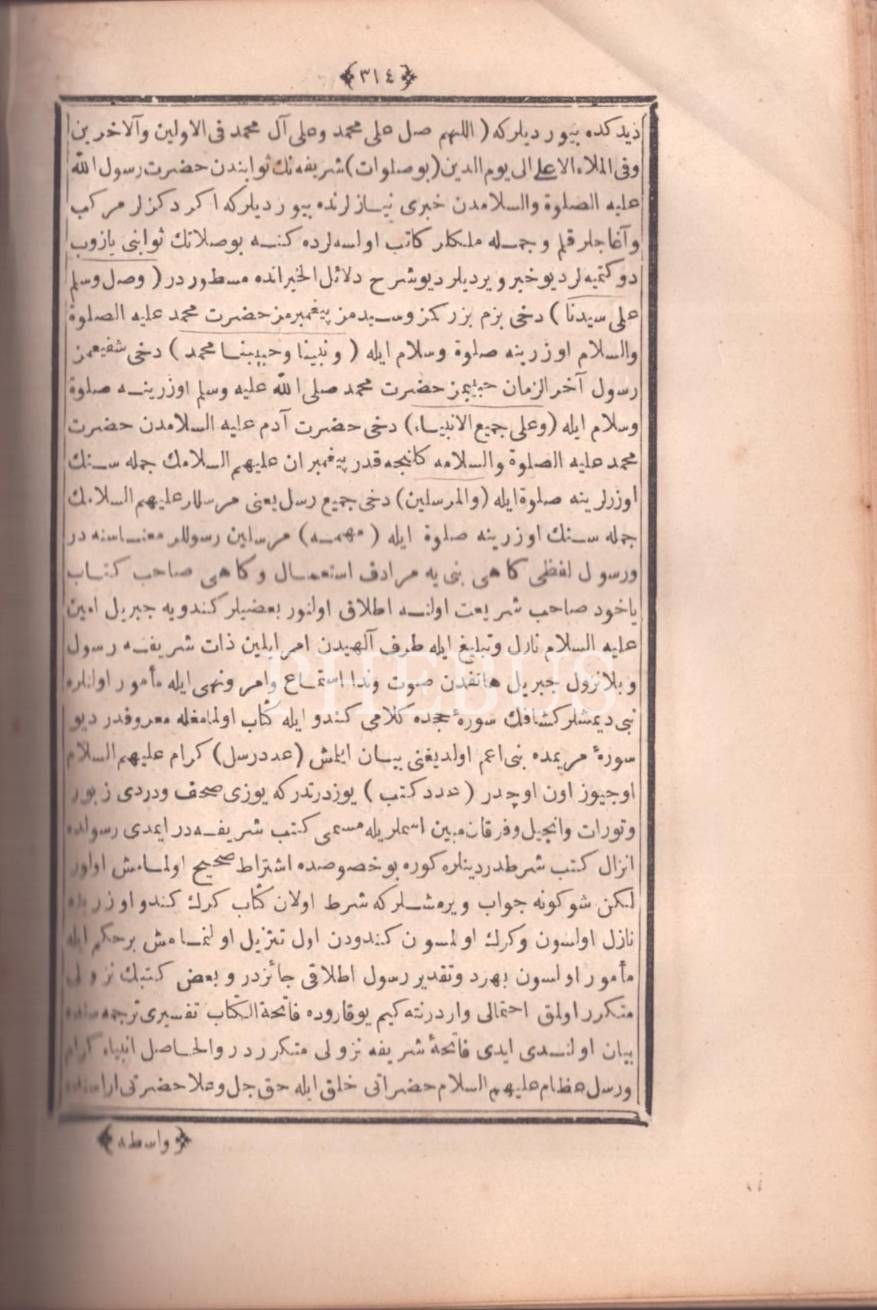 ﴿٣١٤﴾
ذيد كده بيورديلركه ( اللهم صل على محمد وعلى آل محمد فى الاولين والآخرين
وفى الملاء الاعلى الى يوم الدين (بوصلوات) شريفه نك ثوابندن حضرت رسول الله
عليه الصلوة والسلامدن خبرى نيازلرنده بيورديلركه اكر دكزلر مركب
وآغاجلر قلم وجمله ملكلر كاتب اولسه لرده كنه بوصلاتك ثوابنى يازوب
دوكتميه لر ديو خبر ويرديلر ديو شرح دلائل الخيراتده مسطوردر ( وصل وسلم
على سيدنا ) دخى بزم بزركمز وسيدمز پيغمبرمز حضرت محمد عليه الصلوة
والسلام اوزرينه صلوة وسلام ايله ( ونبينا وحبيبنا محمد ) دخى شفيعمز
رسول آخر الزمان حبيبمز حضرت محمد صلى الله عليه وسلم اوزرينه صلوة
وسلام ايله (وعلى جميع الانبياء) دخى حضرت آدم عليه السلامدن حضرت
محمد عليه الصلوة والسلامه كلنجه قدر پيغمبران عليهم السلامك جمله سنك
اوزرلرينه صلوة ايله (والمرسلين) دخى جميع رسل يعنى مرسللر عليهم السلامك
جمله سنك اوزرينه صلوة ايله ( مهمه ) مرسلين رسوللر معناسنه در
ورسول لفظى كاهى نبى يه مرادف استعمال وكاهى صاحب كتاب
ياخود صاحب شريعت اولنه اطلاق اولنور بعضيلر كندويه جبريل امين
عليه السلام نازل وتبليغ ايله طرف آلهيدن امر ايلين ذات شريفه رسول
وبلانزول جبريل هاتفدن صوت وندا استماع وامر ونهى ايله مأمور اولنلره
نبى ديمشلر كشافك سورۀ حجده كلامى كندو ايله كتاب اولمامغله معروفدر ديو
سورۀ مريمده نبى اعم اولديغنى بيان ايلمش (عدد رسل) كرام عليهم السلام
اوچيوز اون اوچدر ( عدد كتب ) يوزدرتدركه يوزى صحف ودردى زبور
وتورات وانجيل وفرقان مبين اسملريله مسمى كتب شريفه در ايمدى رسولده
انزال كتب شرطدر دينلره كوره بوخصوصده اشتراط صحيح اولمامش اولور
لكن شوكونه جواب ويرمشلركه شرط اولان كتاب كرك كندو اوزرينه
نازل اولسون وكرك اولمسون كندودن اول تنزيل اولنمامش برحكم ايله
مأمور اولسون بهرد وتقدير رسول اطلاقى جائزدر وبعض كتبك نزولى
متكرر اولمق احتمالى واردرنته كيم يوقاروده فاتحة الكتاب تفسيرى ترجمه سنده
بيان اولندى ايدى فاتحۀ شريفه نزولى متكرردر والحاصل انبياء كرام
ورسل عظام عليهم السلام حضراتى خلق ايله حق جل وعلا حضرتى اراسنده
﴿واسطه﴾